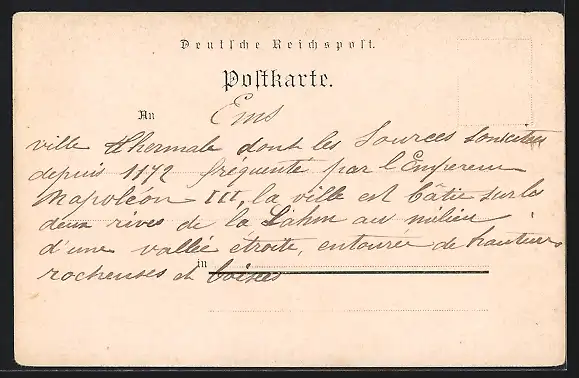 Deutsche Reichspost.
Postkarte.
An Ems
ville thermale dont les sources connues
depuis 1172 fréquenté par l'Empereur
Napoléon III, la ville est bâtie sur les
deux rives de la Lahn au milieu
d'une vallée étroite, entourée de hauteurs
in
rocheuses et boisées